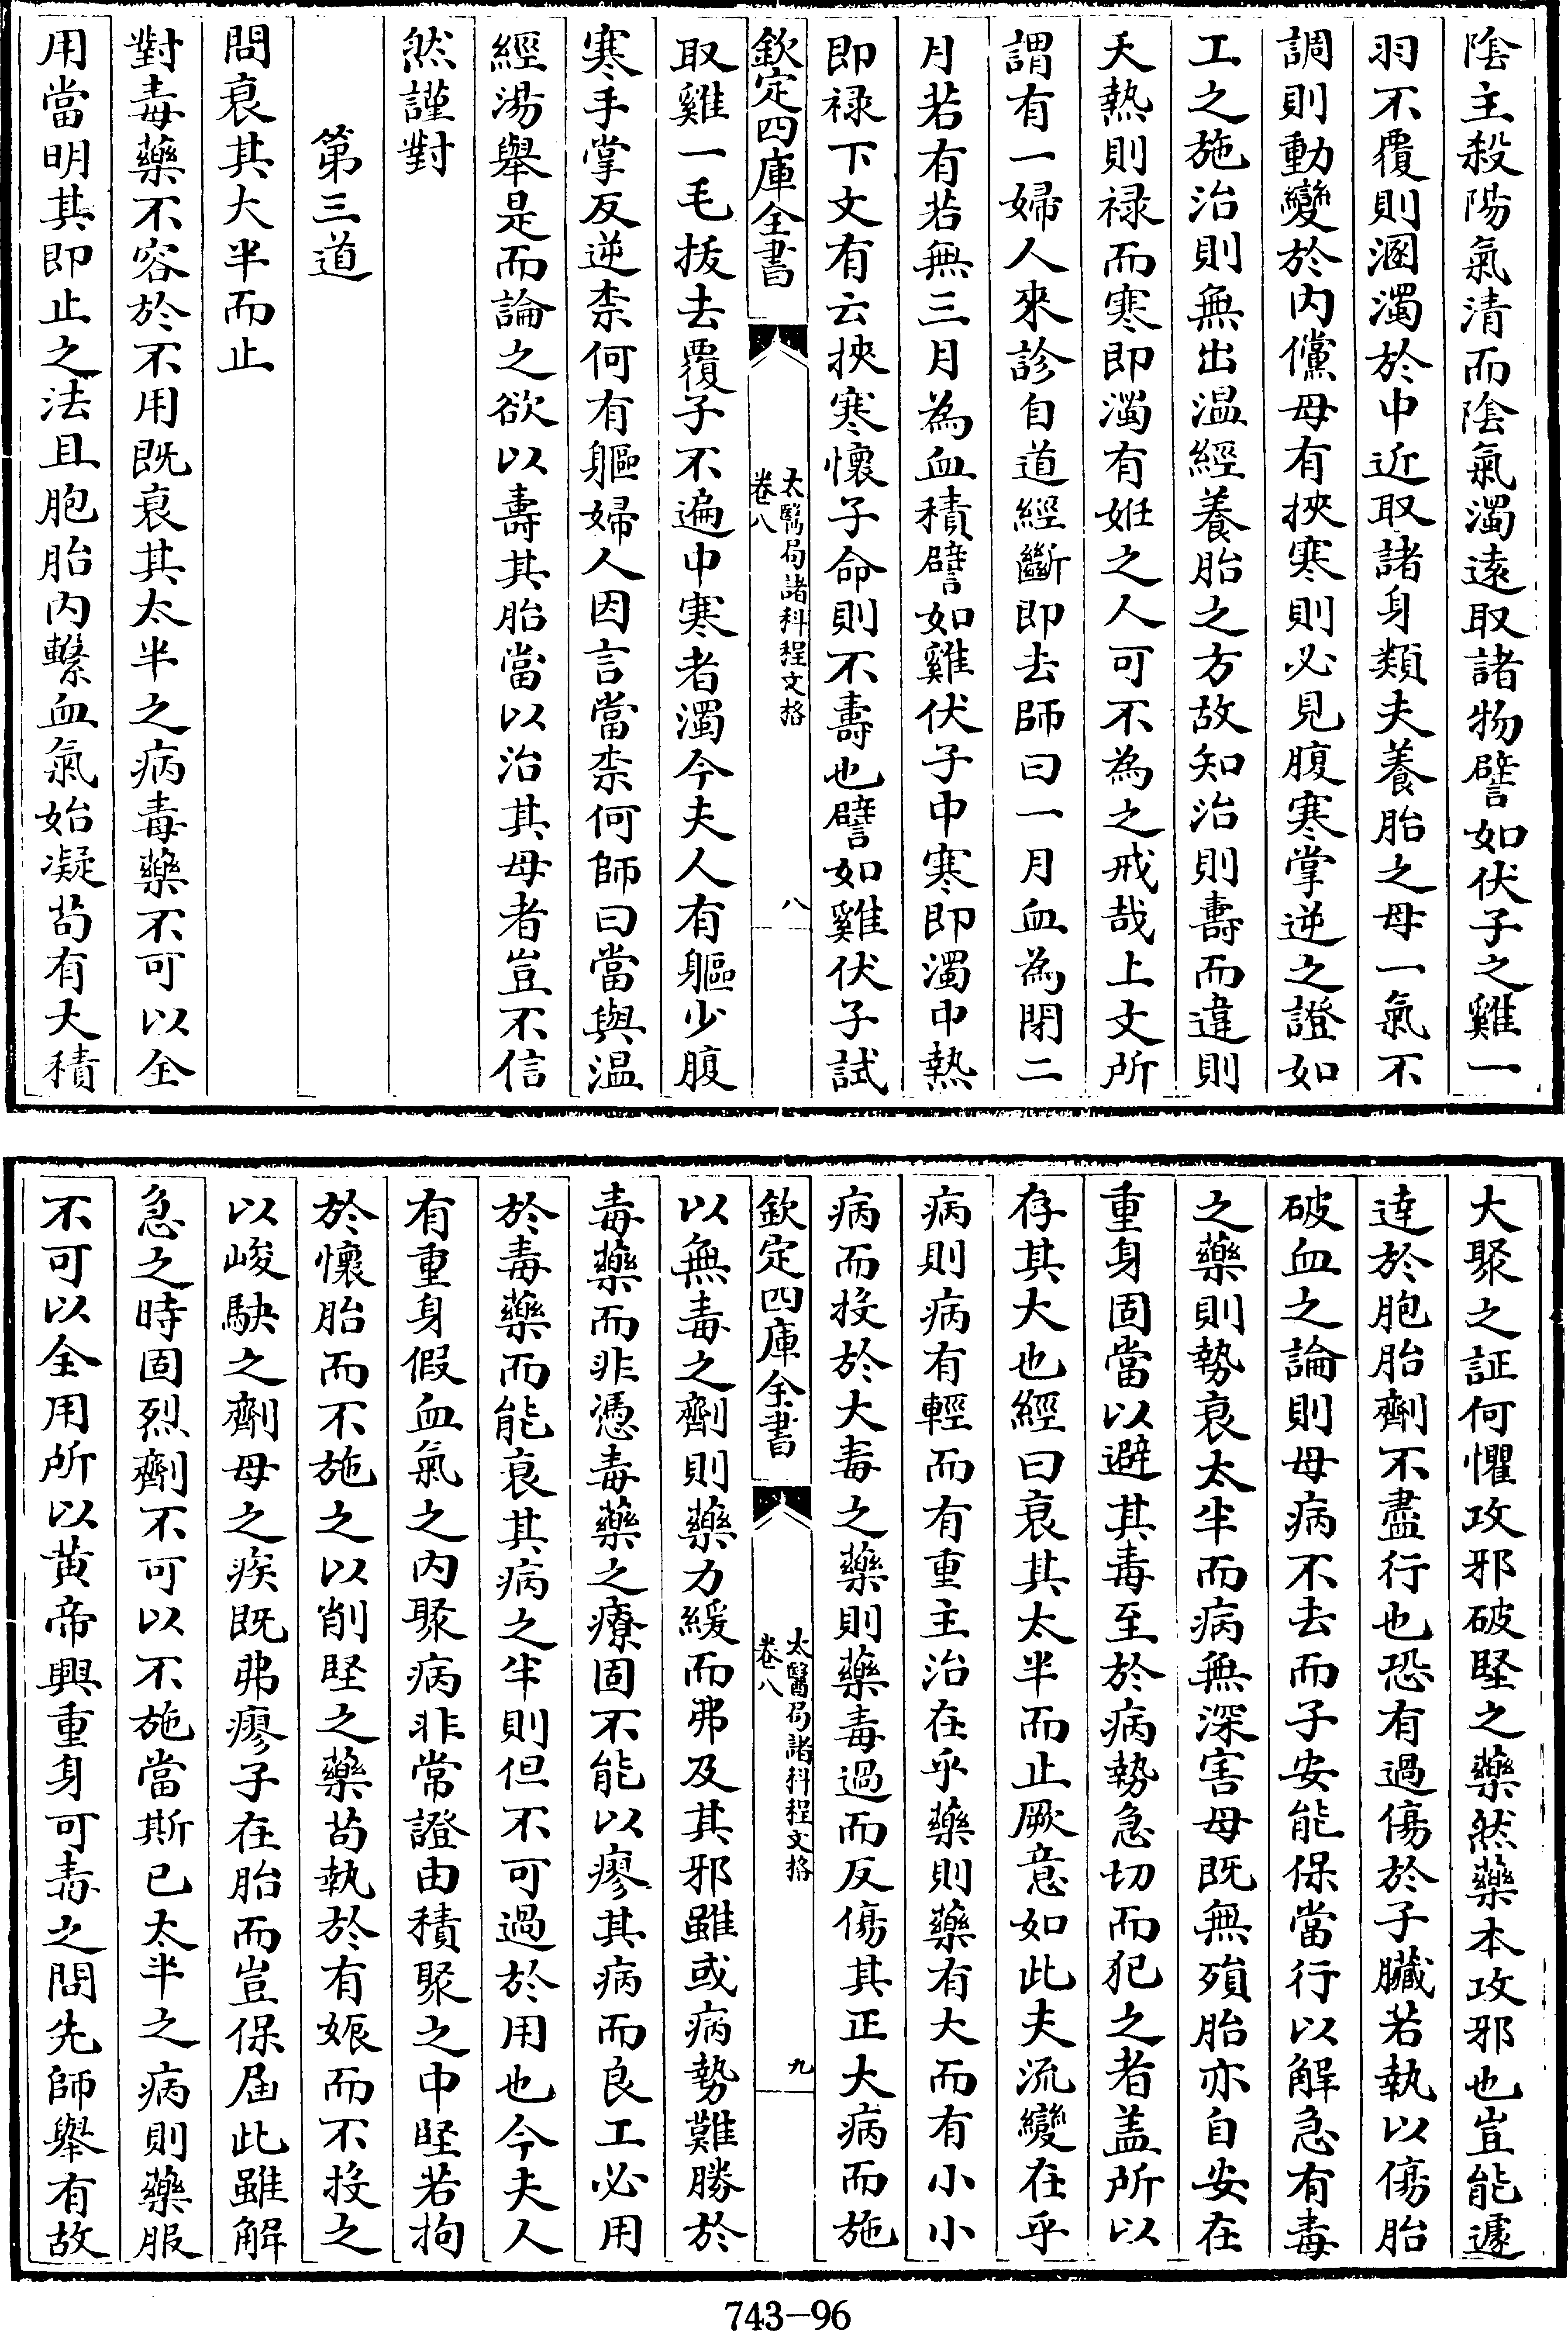 陰主殺陽氣清而陰氣濁遠取諸物譬如伏子之雞一
羽不覆則溷濁於中近取諸身類夫養胎之母一氣不
調則動變於内儻母有挾寒則必見腹寒掌逆之證如
工之施治則無出温經養胎之方故知治則壽而違則
夭熱則禄而寒即濁有姙之人可不為之戒哉上文所
謂有一婦人來診自道經斷即去師曰一月血為閉二
月若有若無三月為血積譬如雞伏子中寒即濁中熱
即禄下文有云挾寒懷子命則不壽也譬如雞伏子試
欽定四庫全書
太醫局諸科程文格
卷八
八
取雞一毛拔去覆子不遍中寒者濁今夫人有軀少腹
寒手掌反逆柰何有軀婦人因言當柰何師曰當與温
經湯舉是而論之欲以壽其胎當以治其母者豈不信
然謹對
第三道
問衰其大半而止
對毒藥不容於不用既衰其太半之病毒藥不可以全
用當明其即止之法且胞胎内繫血氣始凝茍有大積
大聚之証何懼攻邪破堅之藥然藥本攻邪也豈能遽
達於胞胎劑不盡行也恐有過傷於子臟若執以傷胎
破血之論則母病不去而子安能保當行以解急有毒
之藥則勢衰太半而病無深害母既無殞胎亦自安在
重身固當以避其毒至於病勢急切而犯之者盖所以
存其大也經曰衰其太半而止厥意如此夫流變在乎
病則病有輕而有重主治在乎藥則藥有大而有小小
病而投於大毒之藥則藥毒過而反傷其正大病而施
欽定四庫全書
太醫局諸科程文格
卷八
九
以無毒之劑則藥力緩而弗及其邪雖或病勢難勝於
毒藥而非憑毒藥之療固不能以瘳其病而良工必用
於毒藥而能衰其病之半則但不可過於用也今夫人
有重身假血氣之内聚病非常證由積聚之中堅若拘
於懷胎而不施之以削堅之藥茍執於有娠而不投之
以峻駃之劑母之疾既弗瘳子在胎而豈保屆此雖解
急之時固烈劑不可以不施當斯已太半之病則藥服
不可以全用所以黄帝興重身可毒之問先師舉有故
743-96